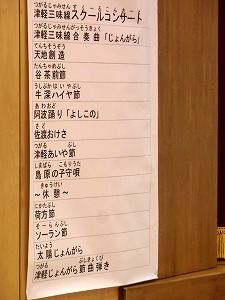 つがるじゃみせん
津軽三味線スクールコンサート
つがるじゃみせんがっそうきょく
津軽三味線合奏曲「じょんがら」
てんちそうぞう
天地創造
たんちゃめぶし
谷茶前節
うしぶかはいやぶし
牛深ハイヤ節
あわおど
阿波踊り「よしこの」
さど
佐渡おけさ
つがる ぶし
津軽あいや節
しまばら こもりうた
島原の子守唄
きゅうけい
～休憩～
にかたぶし
荷方節
そーらんぶし
ソーラン節
たいよう
太陽じょんがら
つがる ぶしきょくび
津軽じょんがら節曲弾き